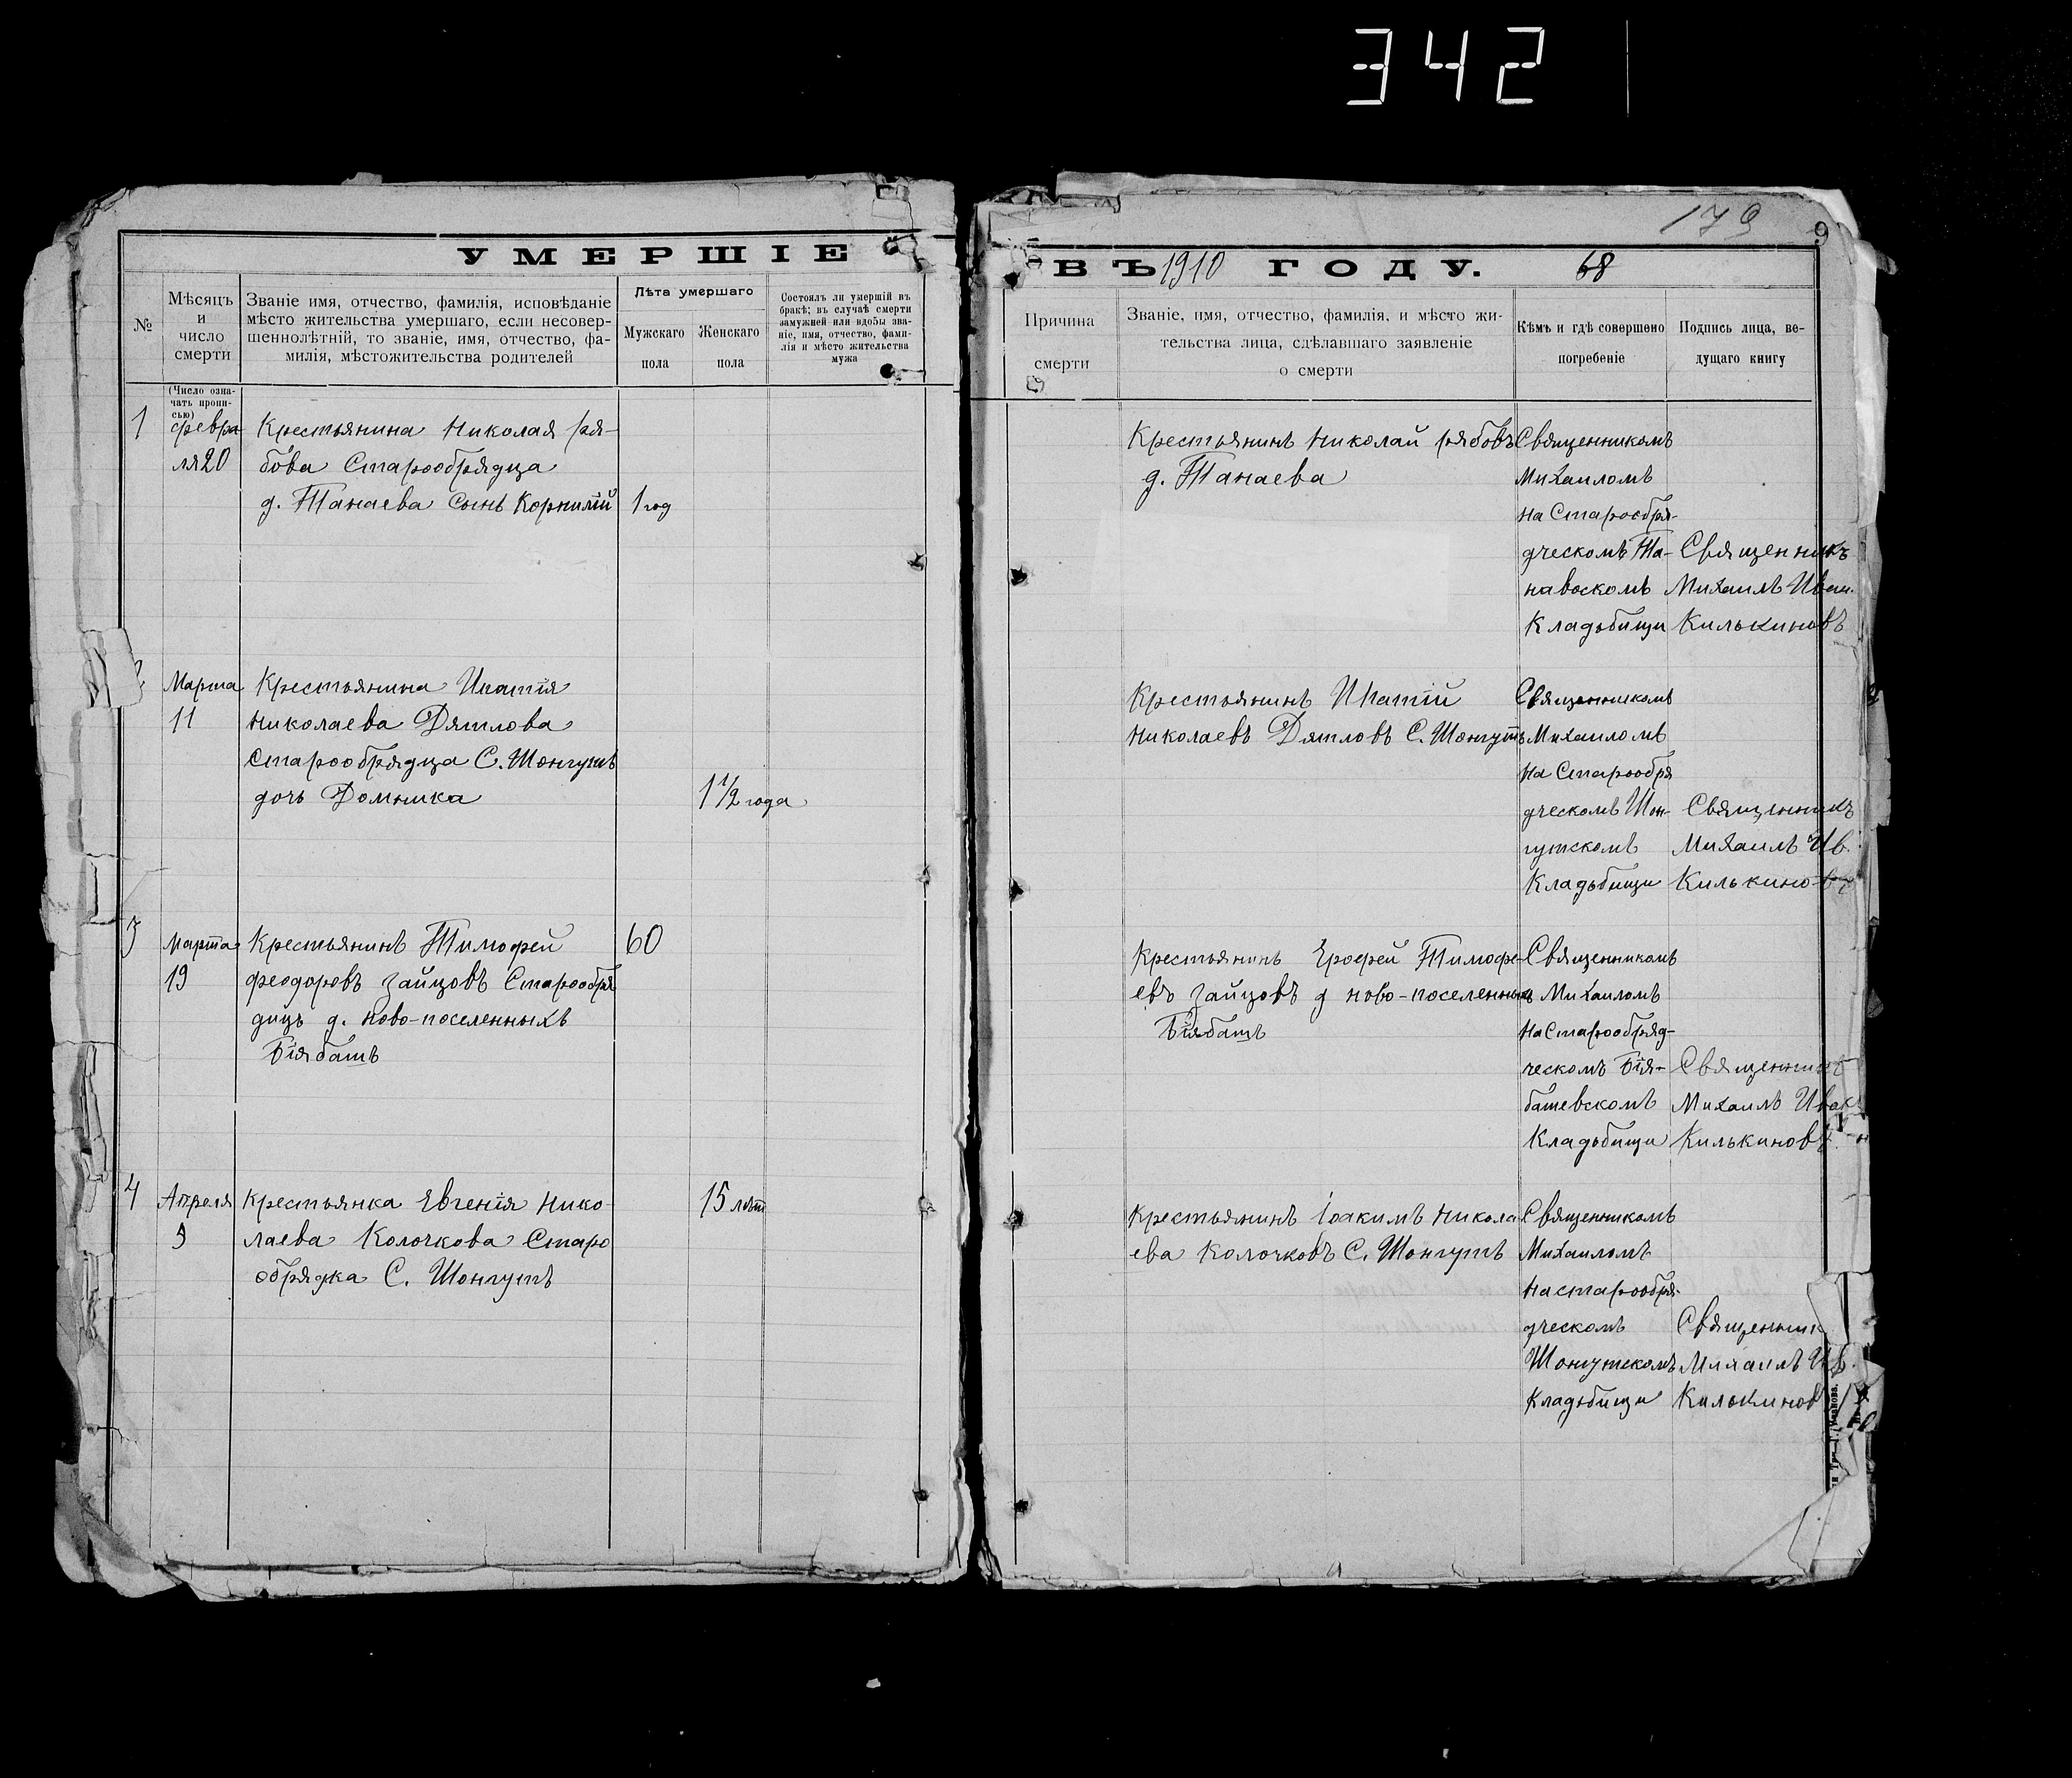 342
179
9
УМЕРШІЕ
ВЪ 1910 ГОДУ.
68
№
Мѣсяцъ
и
число
смерти
Званіе имя, отчество, фамилія, исповѣданіе
мѣсто жительства умершаго, если несовер-
шеннолѣтній, то званіе, имя, отчество, фа-
милія, мѣстожительства родителей
Лѣта умершаго
Мужскаго
пола
Женскаго
пола
Состоялъ ли умершій въ
бракѣ; въ случаѣ смерти
замужней или вдовы зва-
ніе, имя, отчество, фами-
лія и мѣсто жительства
мужа
Причина
смерти
Званіе, имя, отчество, фамилія, и мѣсто жи-
тельства лица, сдѣлавшаго заявленіе
о смерти
Кѣмъ и гдѣ совершено
погребеніе
Подпись лица, ве-
дущаго книгу
(Число озна-
чать пропи-
сью)
1
февра
ля 20
Крестьянина Николая Ря-
бова Старообрядца
д. Танаева сынъ Корнилій
1 год
Крестьянинъ Николай Рябовъ
д. Танаева
Священникомъ
Михаиломъ
на Старообря-
дческомъ Та-
навоскомъ
Кладьбищи
Священникъ
Михаилъ Иван.
Килькиновъ
Марта
11
Крестьянина Ипатія
Николаева Дятлова
Старообрядца С. Шонгутъ
дочь Домника
1 1/2 года
Крестьянинъ Ипатій
Николаевъ Дятловъ С. Шонгутъ
Священникомъ
Михаиломъ
на Старообря
дческомъ Шон-
гутскомъ
Кладьбищи
Священникъ
Михаилъ Ив.
Килькиновъ
3
Марта
19
Крестьянинъ Тимофей
Феодоровъ Зайцовъ Старообря
дицъ д. Ново-поселенныхъ
Біябашъ
60
Крестьянинъ Ерофей Тимофе-
евъ Зайцовъ д Ново-поселенныхъ
Біябашъ
Священникомъ
Михаиломъ
на Старообряд-
ческомъ Бія-
башевскомъ
Кладьбищи
Священникъ
Михаилъ Иван
Килькиновъ
4
Апреля
9
Крестьянка Евгенія Нико-
лаева Колочкова Старо
обрядка С. Шонгутъ
15 лѣт
Крестьянинъ Іоакимъ Никола
ева Колочковъ С. Шонгутъ
Священникомъ
Михаиломъ
на старообря-
дческомъ
Шонгутскомъ
Кладьбищи
Священник
Михаилъ Ив.
Килькинов